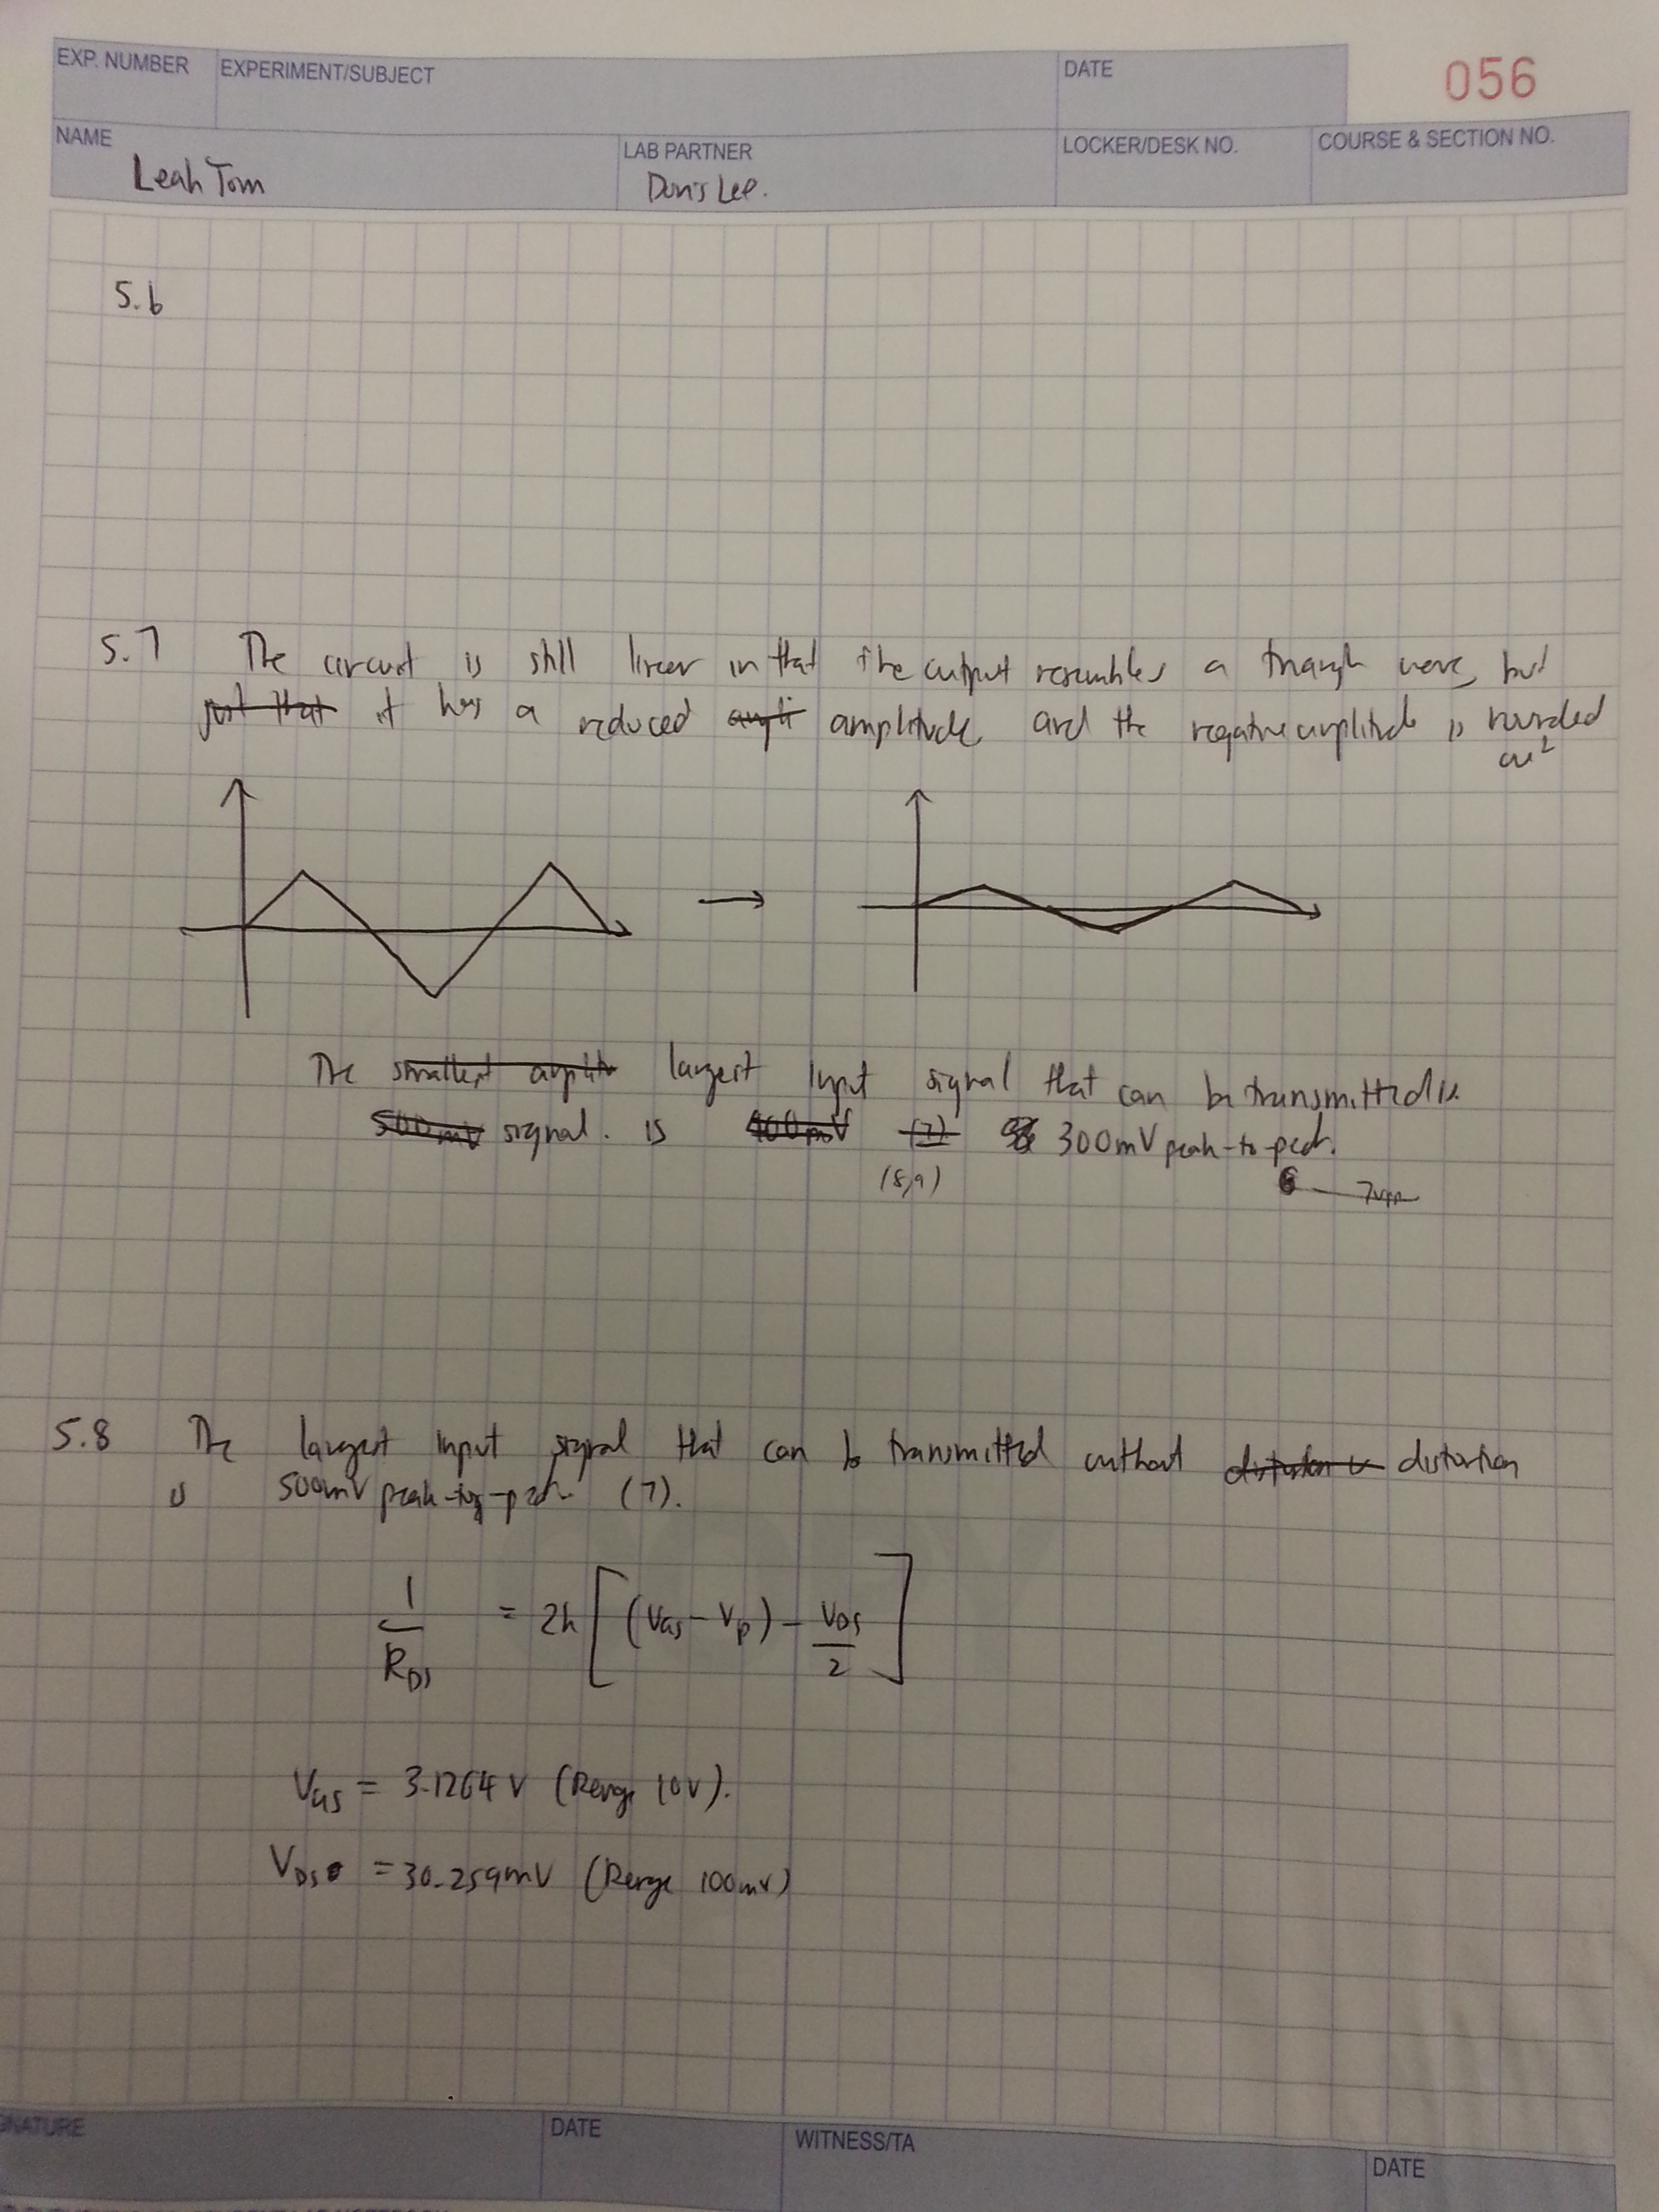 EXP. NUMBER EXPERIMENT/SUBJECT DATE 056
NAME LAB PARTNER LOCKER/DESK NO. COURSE & SECTION NO.
Leah Tom Doris Lee.
5.6
5.7 The circuit is still linear in that the output resembles a triangle wave, but
just that it has a reduced ampli amplitude and the negative amplitude is rounded
→
The smallest amplit largest input signal that can be transmitted is
500mV signal. is 400mV (7) 300mV peak-to-peak.
(8,9)
5.8 The largest input signal that can be transmitted without distortion is distortion
is 500mV peak-to-peak (7).
1/R_DS = 2k [(V_GS - V_p) - V_DS/2]
V_GS = 3.1264 V (Range 10V).
V_DS = 30.259mV (Range 100mV)
DATE WITNESS/TA
DATE